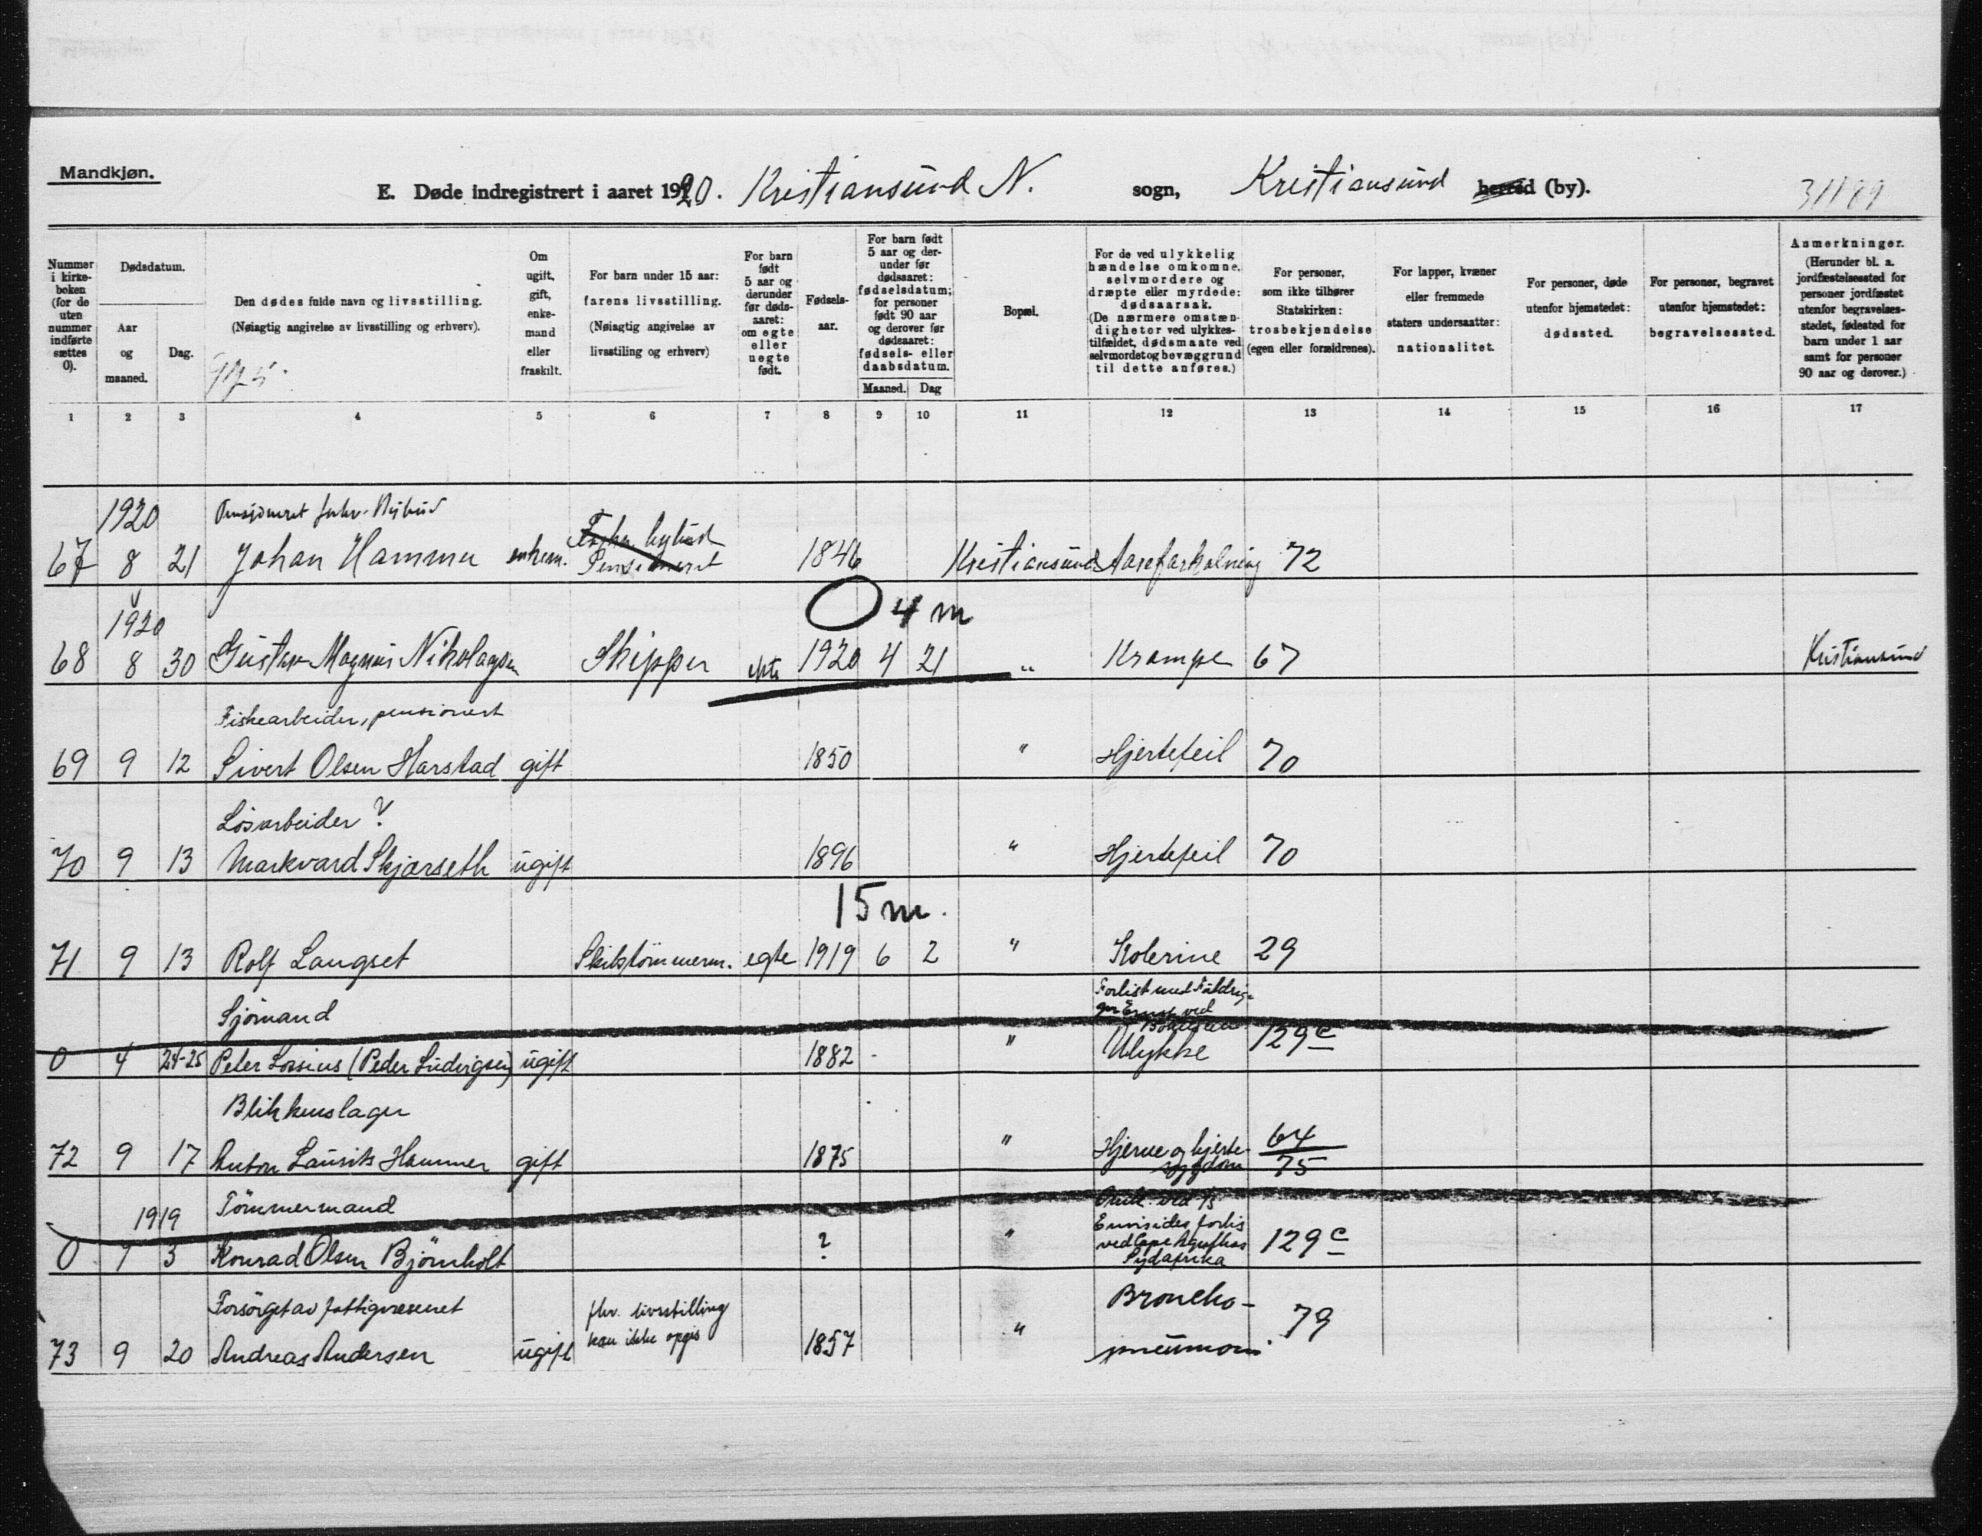 Mandkjøn.
E. Døde indregistrert i aaret 1920. Kristiansund N. sogn, Kristiansund herred (by).
Nummer i kirkeboken (for de uten nummer indførte sættes 0).
Dødsdatum.
Aar og maaned.
Dag.
Den dødes fulde navn og livsstilling.
(Nøiagtig angivelse av livsstilling og erhverv).
Om ugift, gift, enkemand eller fraskilt.
For barn under 15 aar: farens livsstilling.
(Nøiagtig angivelse av livsstiling og erhverv)
For barn født 5 aar og derunder før dødsaaret: om egte eller uegte født.
Fødselsaar.
For barn født 5 aar og derunder før dødsaaret: fødselsdatum; for personer født 90 aar og derover før dødsaaret: fødsels- eller daabsdatum.
Maaned. Dag
Bopæl.
For de ved ulykkelig hændelse omkomne, selvmordere og dræpte eller myrdede: dødsaarsak.
(De nærmere omstændigheter ved ulykkestilfældet, dødsmaate ved selvmordet og bevæggrund til dette anføres.)
For personer, som ikke tilhører Statskirken: trosbekjendelse (egen eller forældrenes).
For lapper, kvæner eller fremmede staters undersaatter: nationalitet.
For personer, døde utenfor hjemstedet: dødssted.
For personer, begravet utenfor hjemstedet: begravelsessted.
Anmerkninger.
(Herunder bl. a. jordfæstelsessted for personer jordfæstet utenfor begravelsesstedet, fødested for barn under 1 aar samt for personer 90 aar og derover.)
1 2 3 4 5 6 7 8 9 10 11 12 13 14 15 16 17
1920 Pensioneret forhv. Bybud
67 8 21 Johan Hammer enkem. Fisker bybud Pensioneret 1846 Kristiansund Aareforkalkning 72
0 4 m
1920
68 8 30 Gustav Magnus Nikolaysen Skipper egte 1920 4 21 " Krampe 67 Kristiansund
Fiskearbeider, pensionert
69 9 12 Sivert Olsen Harstad gift 1850 " Hjertefeil 70
Løsarbeider ?
70 9 13 Markvard Skjærseth ugift 1896 " Hjertefeil 70
15 m.
71 9 13 Rolf Langset Skibstømmerm. egte 1919 6 2 " Kolerine 29
Sjømand Forlist med
0 4 24-25 Peter Lossius (Peder Ludvigsen) ugift 1882 " Ulykke 129c
Blikkenslager
72 9 17 Anton Laurits Hammer gift 1875 " Hjerne og hjerte- sygdom 64 75
1919 Tømmermand
0 1 3 Konrad Olsen Bjørnholt ? " forlis ved Cape Agulhas Sydafrika 129c
Forsørget av fattigvæsenet fhv. livsstilling kan ikke opgis Broncho-
73 9 20 Andreas Andersen ugift 1857 " pneumoni 79